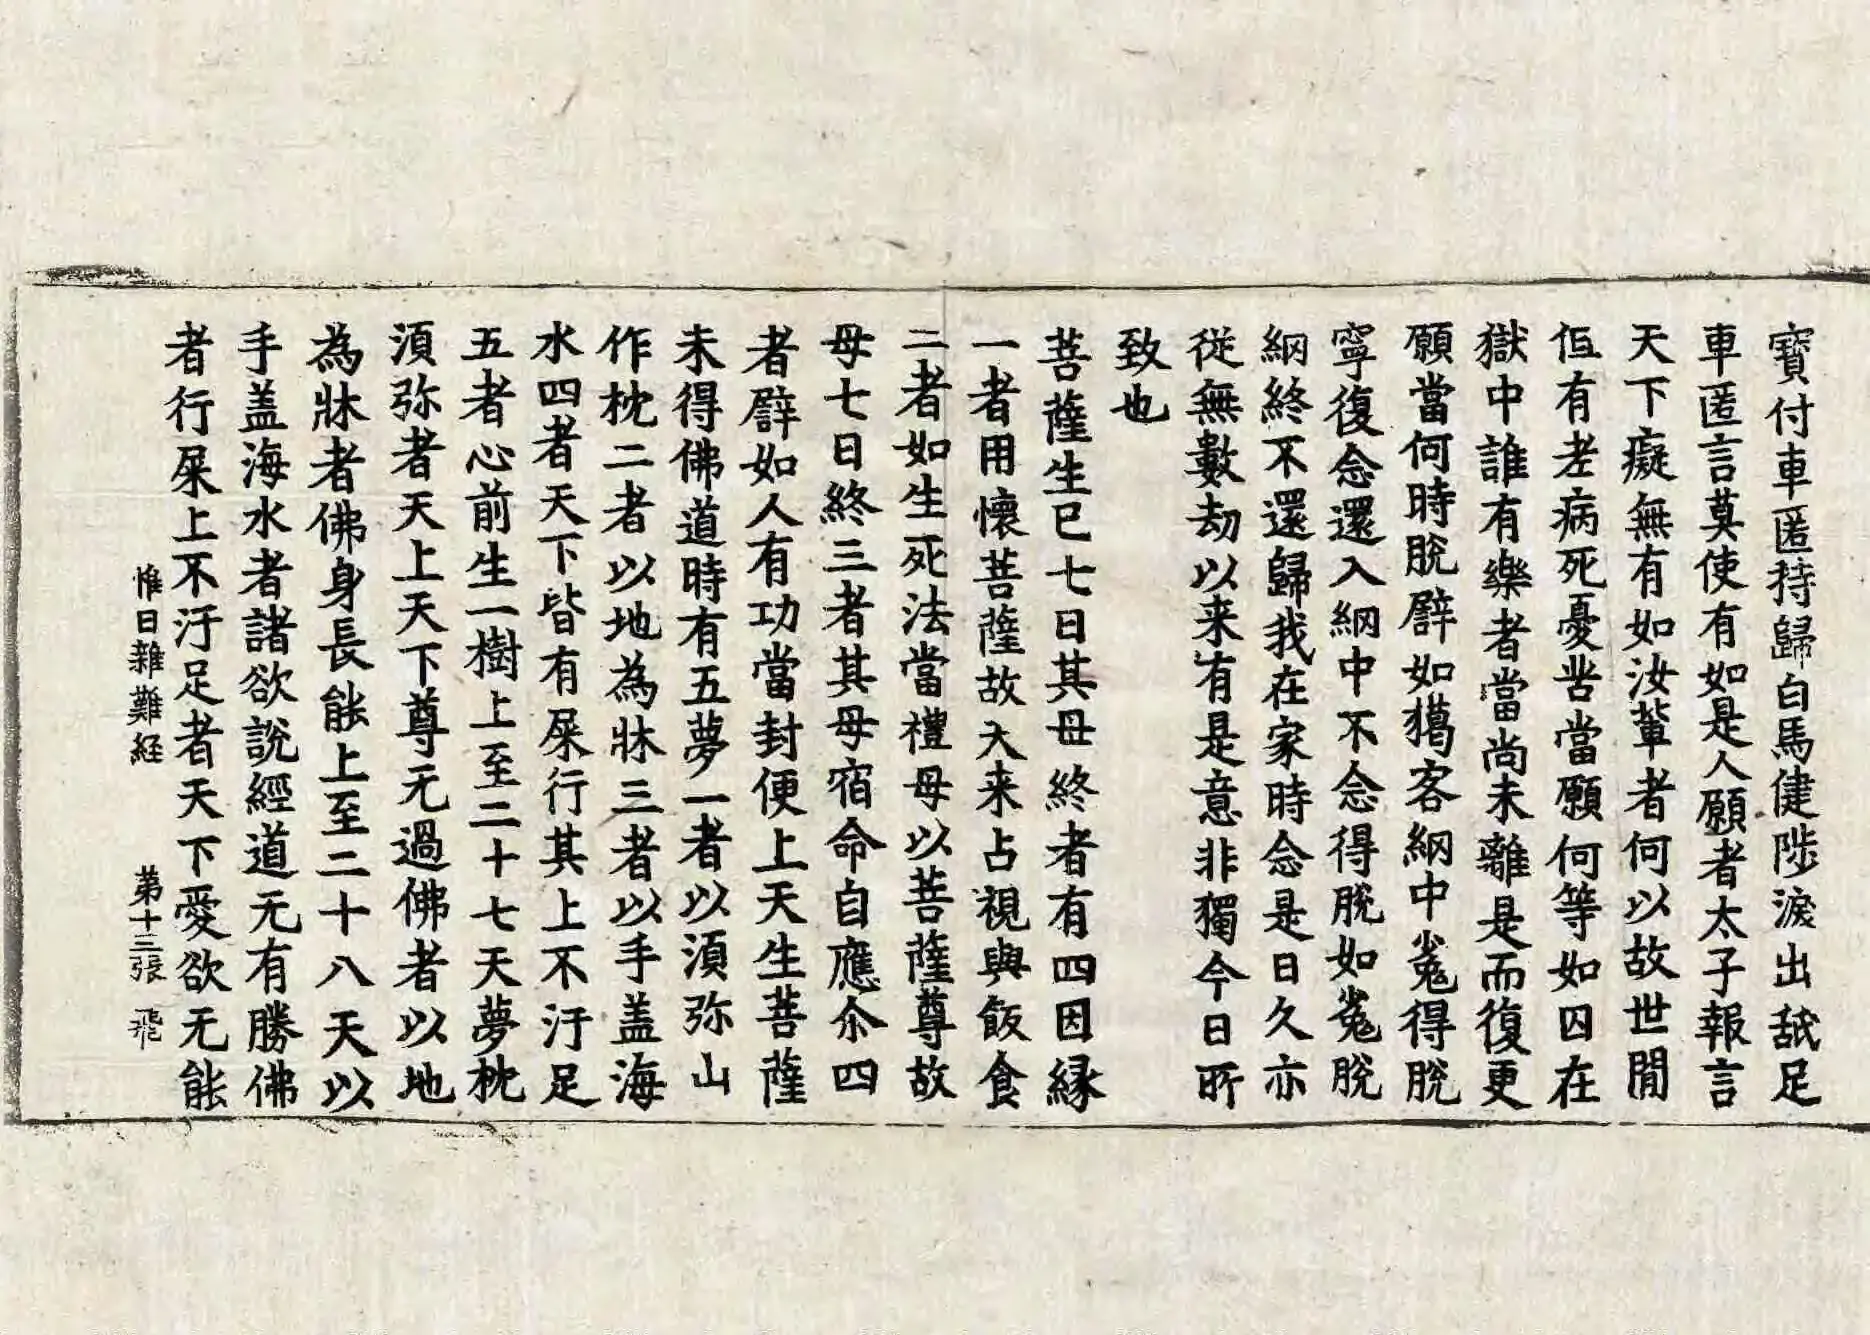 寶付車匿持歸白馬健陟淚出舐足
車匿言莫使有如是人願者太子報言
天下癡無有如汝輩者何以故世間
但有老病死憂苦當願何等如囚在
獄中誰有樂者當尚未離是而復更
願當何時脫譬如獦客網中㝹得脫
寧復念還入網中不念得脫如㝹脫
網終不還歸我在家時念是日久亦
從無數劫以来有是意非獨今日所
致也
菩薩生已七日其母終者有四因緣
一者用懷菩薩故天来占視與飯食
二者如生死法當禮母以菩薩尊故
母七日終三者其母宿命自應尒四
者譬如人有功當封便上天生菩薩
未得佛道時有五夢一者以須弥山
作枕二者以地為牀三者以手盖海
水四者天下皆有屎行其上不汙足
五者心前生一樹上至二十七天夢枕
須弥者天上天下尊无過佛者以地
為牀者佛身長能上至二十八天以
手盖海水者諸欲說經道无有勝佛
者行屎上不汙足者天下愛欲无能
惟日雜難経 第十三張 飛